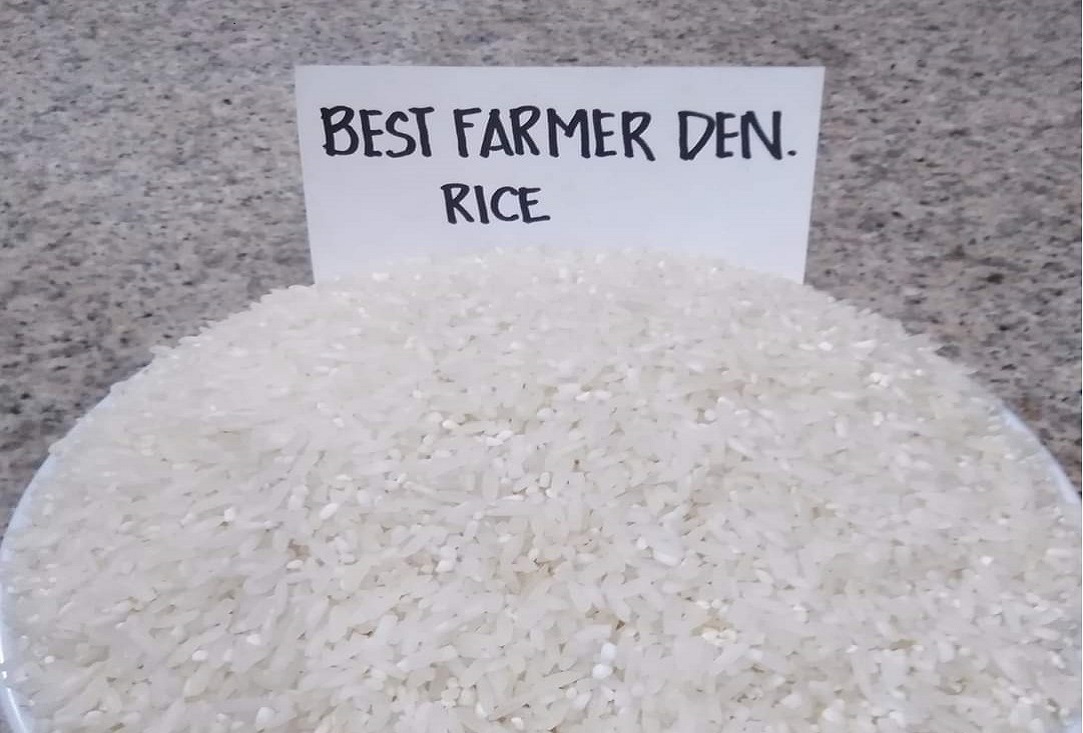 BEST FARMER DEN.
RICE